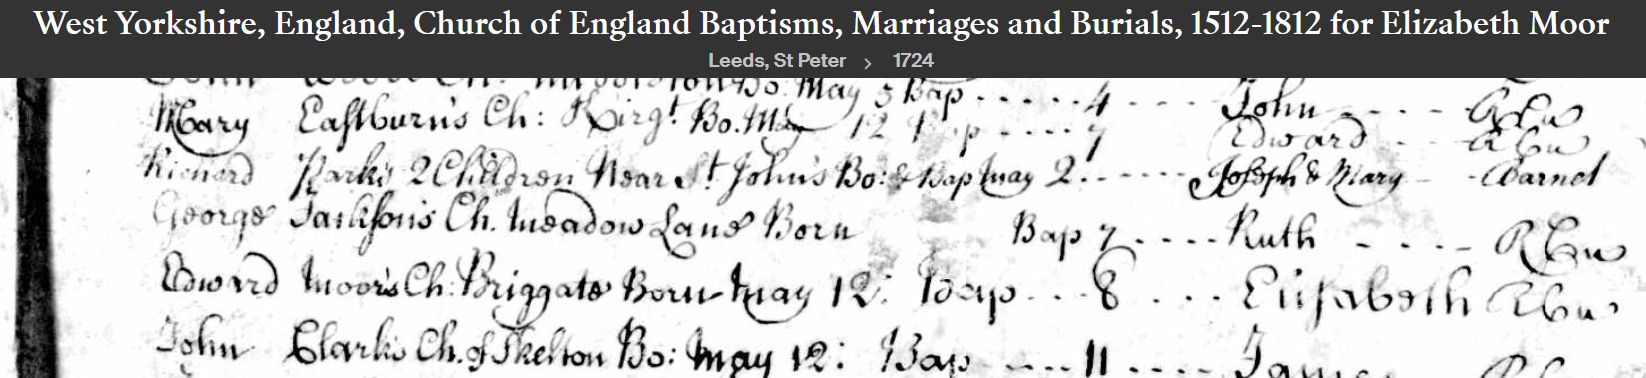 West Yorkshire, England, Church of England Baptisms, Marriages and Burials, 1512-1812 for Elizabeth Moor
Leeds, St Peter › 1724
May 5 Bap.....4 .... John .... RCw
Mary Eastburn's Ch: Kirgt. Bo. May 12 Bap .....7 Edward .. RCw
Richard Park's 2 Children Near St. John's Bo: & Bap May 2...... Joseph & Mary -
George Jackson's Ch. Meadow Lane Born Bap 7.....Ruth ..... RCw
Edward Moor's Ch: Briggate Born May 12: Bap...8.... Elizabeth RCw
John Clark's Ch. of Skelton Bo: May 12: Bap ....11.... James